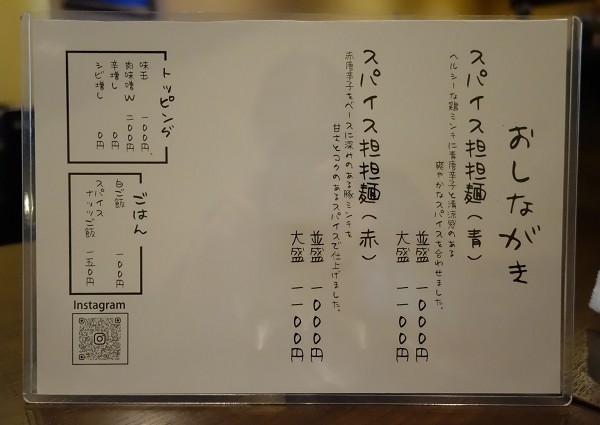 おしながき
スパイス担担麺(青)
ヘルシーな鶏ミンチに青唐辛子と清涼感のある
爽やかなスパイスを合わせました。
並盛 一〇〇〇円
大盛 一一〇〇円
スパイス担担麺(赤)
赤唐辛子をベースに深みのある豚ミンチを
甘さとコクのあるスパイスで仕上げました。
並盛 一〇〇〇円
大盛 一一〇〇円
トッピング
味玉 一〇〇円
肉味噌W 二〇〇円
辛増し 〇円
シビ増し 〇円
ごはん
白ご飯 一〇〇円
スパイス
ナッツご飯 一五〇円
Instagram